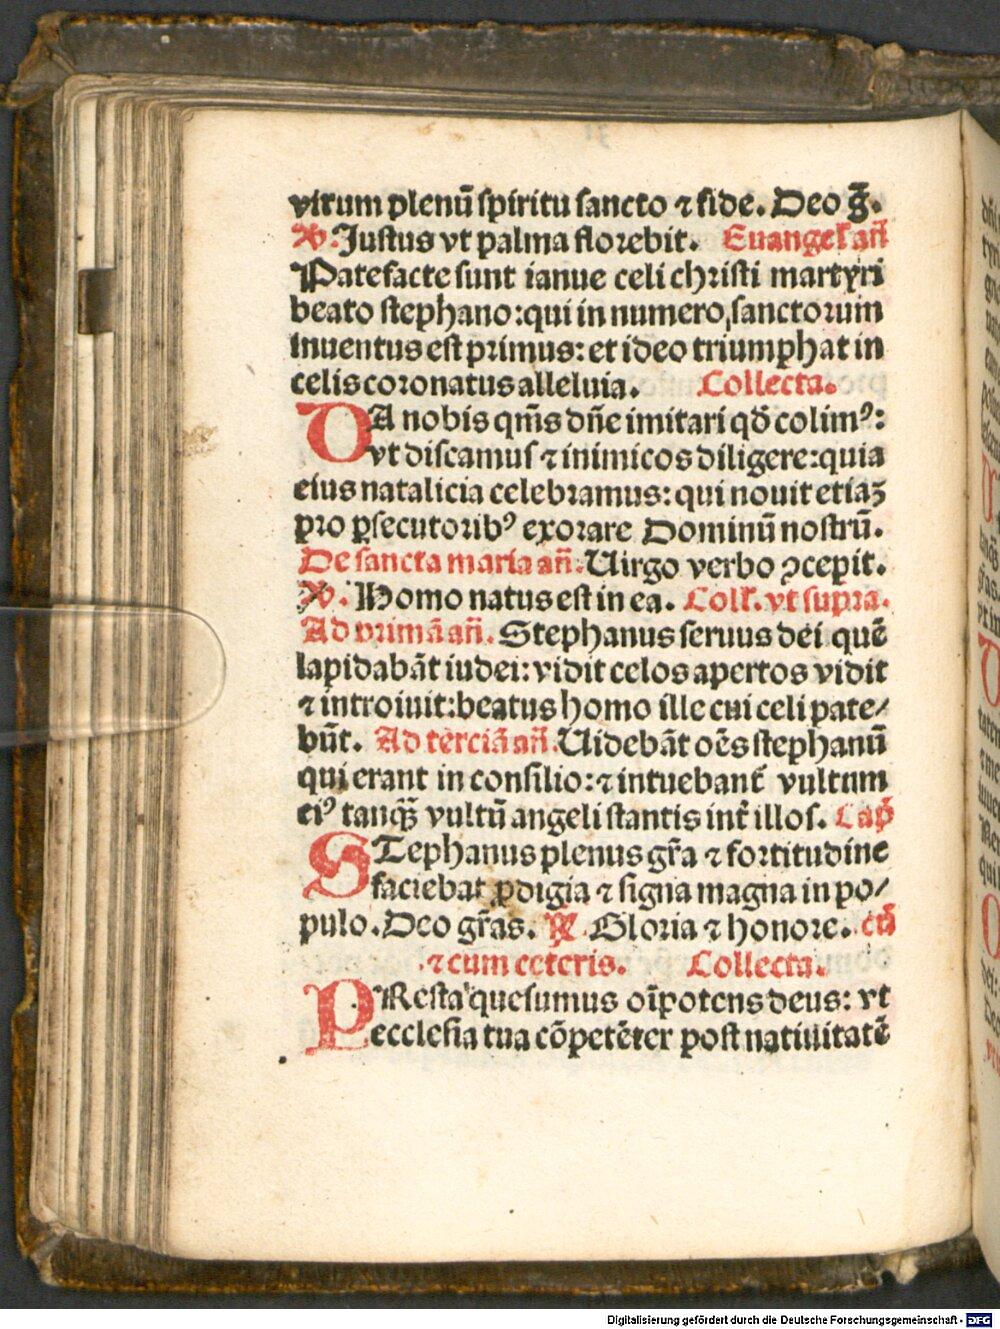 virum plenū spiritu sancto ⁊ fide. Deo ḡ.
℣. Justus vt palma florebit. Euangel̉ an̄
Patefacte sunt ianue celi christi martyri
beato stephano: qui in numero sanctorum
inuentus est primus: et ideo triumphat in
celis coronatus alleluia. Collecta.
DA nobis qm̄s dn̄e imitari qd̄ colimꝰ:
vt discamus ⁊ inimicos diligere: quia
eius natalicia celebramus: qui nouit etiaꝫ
pro ꝑsecutoribꝰ exorare Dominū nostrū.
De sancta maria an̄. Uirgo verbo ↄcepit.
℣. Homo natus est in ea. Coll̉. vt supra.
Ad primā an̄. Stephanus seruus dei quē
lapidabāt iudei: vidit celos apertos vidit
⁊ introiuit: beatus homo ille cui celi pate/
būt. Ad terciā an̄. Uidebāt oēs stephanū
qui erant in consilio: ⁊ intuebant̄ vultum
eiꝰ tanꝙ̄ vultū angeli stantis int̄ illos. Cap̄
STephanus plenus gr̄a ⁊ fortitudine
faciebat ꝓdigia ⁊ signa magna in po/
pulo. Deo gr̄as. ℟ Gloria ⁊ honore. cū
⁊ cum ceteris. Collecta.
PResta quesumus oīpotens deus: vt
ecclesia tua cōpetēter post natiuitatē
Digitalisierung gefördert durch die Deutsche Forschungsgemeinschaft - DFG